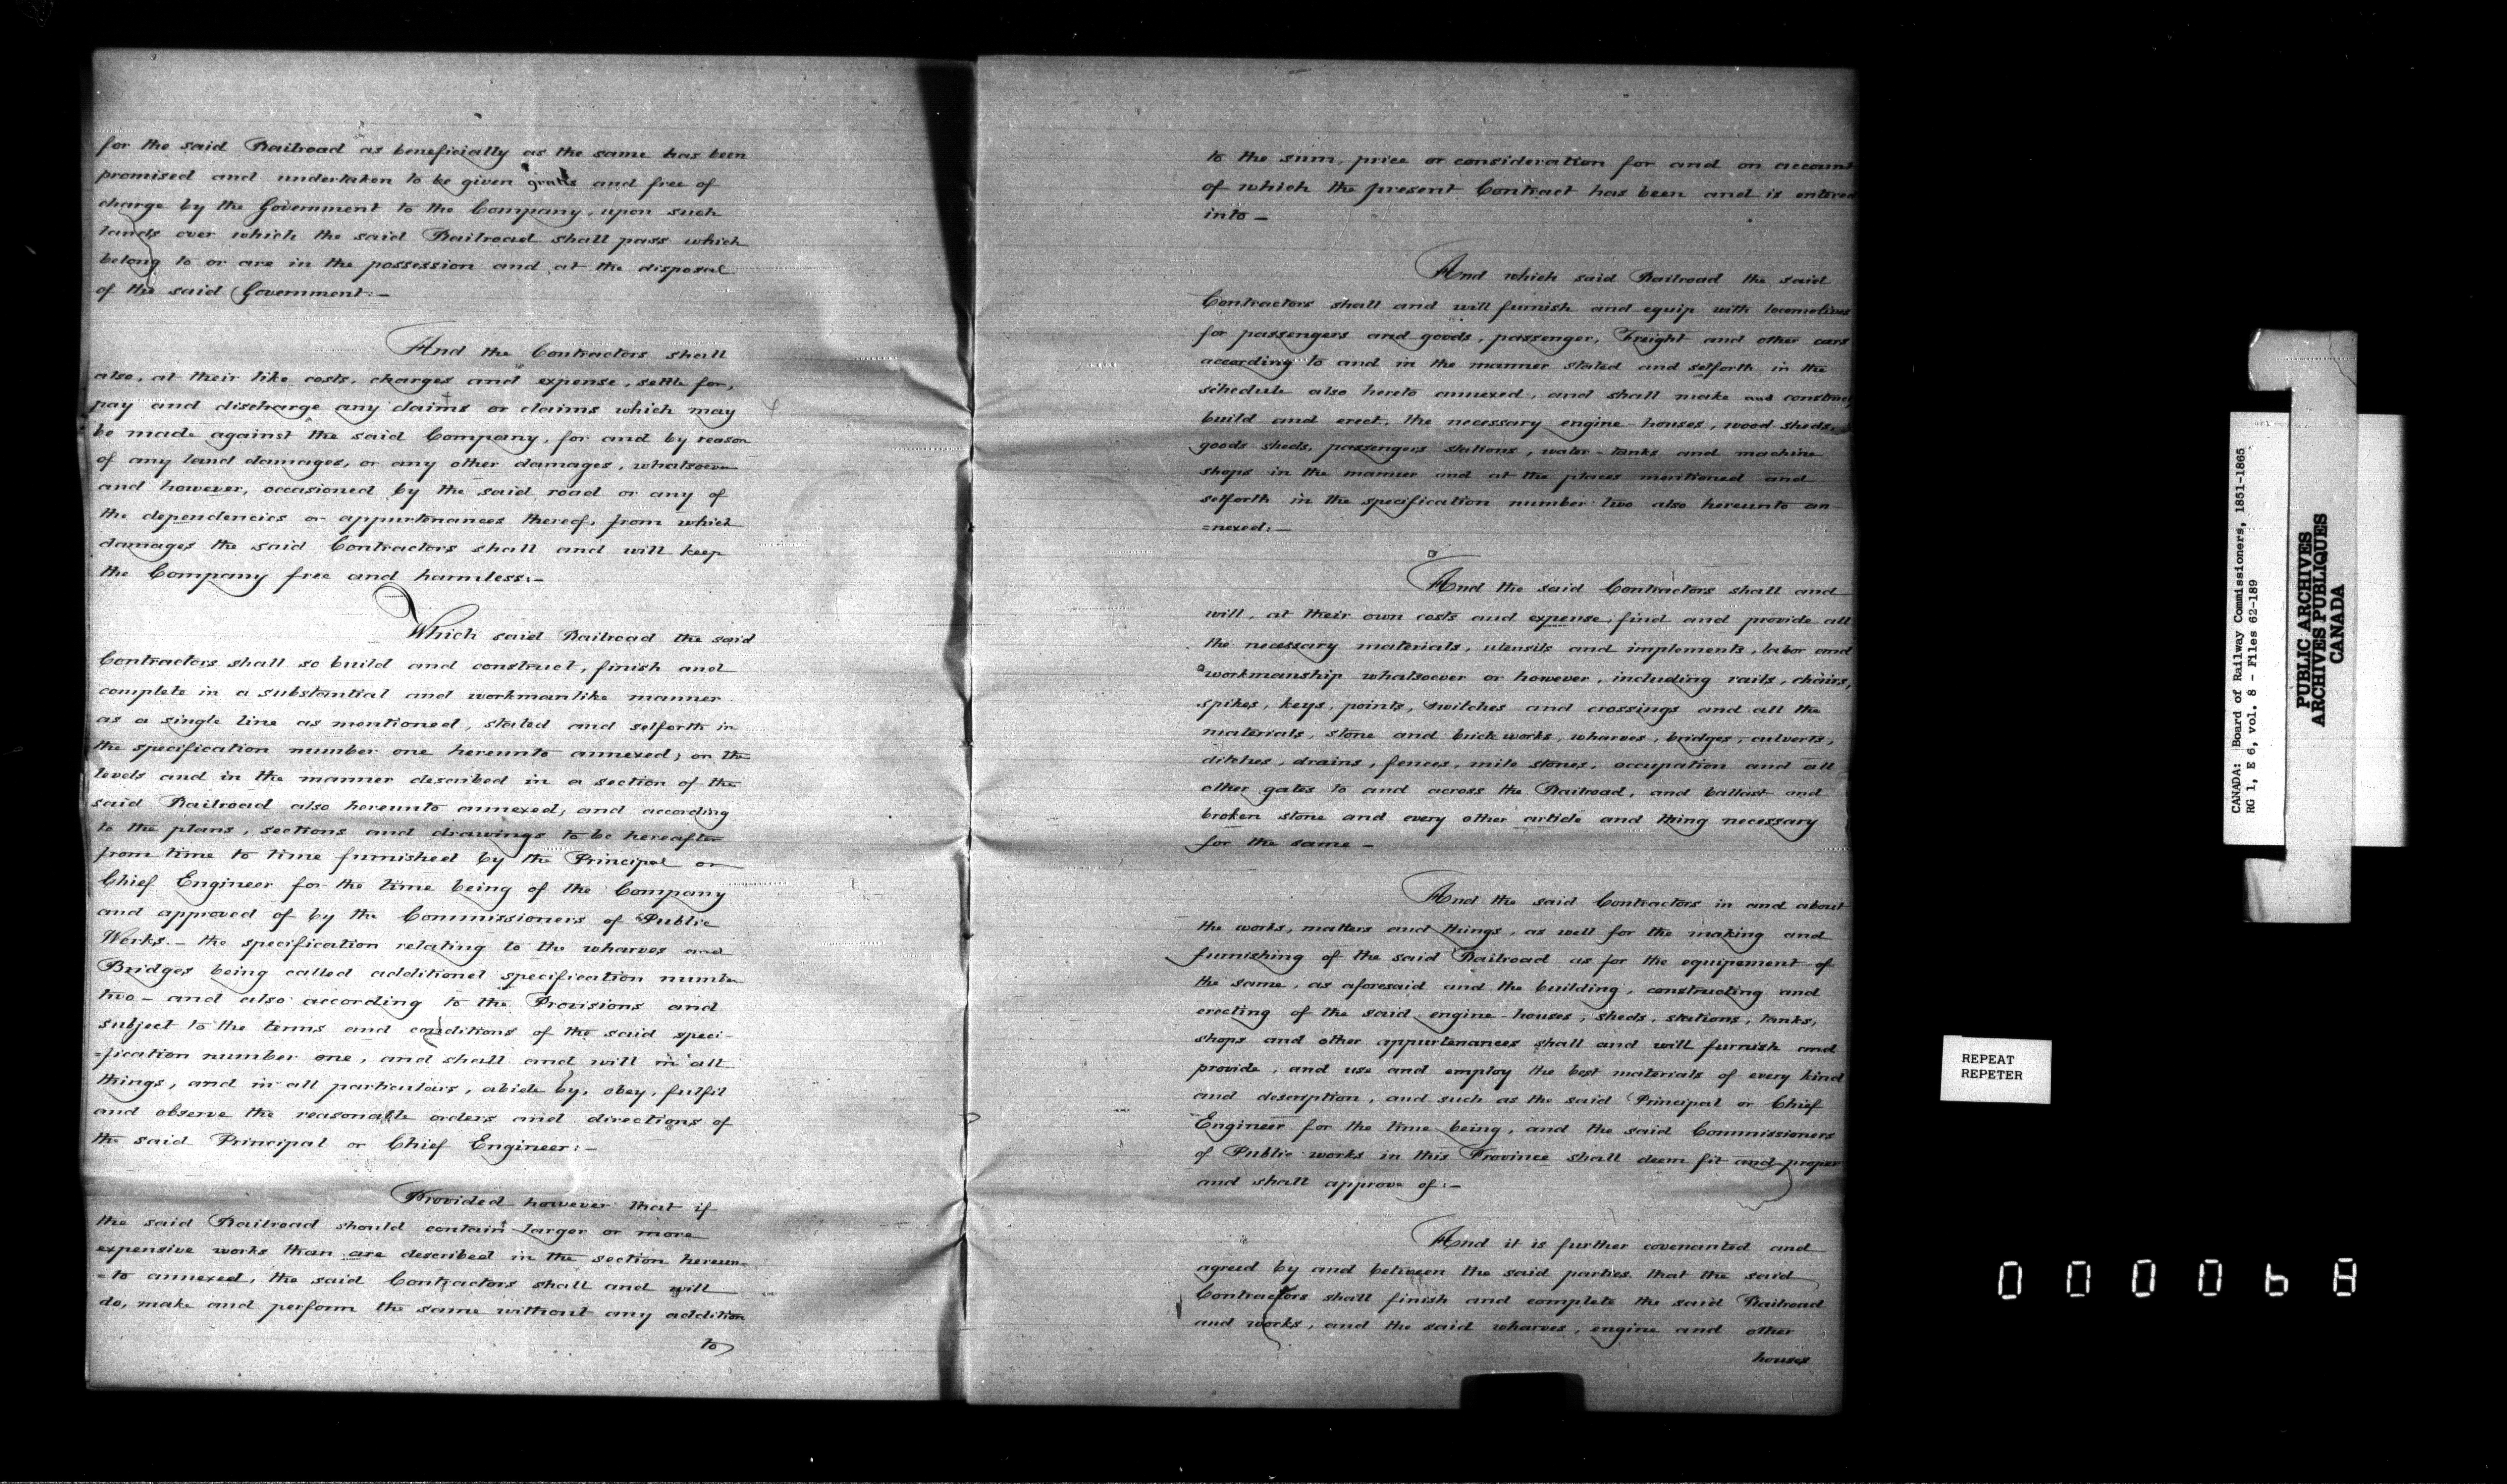 for the said Railroad as beneficially as the same has been
promised and undertaken to be given gratis and free of
charge by the Government to the Company, upon such
lands over which the said Railroad shall pass which
belong to or are in the possession and at the disposal
of the said Government:—
And the Contractors shall
also, at their like costs, charges and expense, settle for,
pay and discharge any claims or claims which may
be made against the said Company, for and by reason
of any land damages, or any other damages, whatsoever
and however, occasioned by the said road or any of
the dependencies or appurtenances thereof, from which
damages the said Contractors shall and will keep
the Company free and harmless:—
Which said Railroad the said
Contractors shall so build and construct, finish and
complete in a substantial and workmanlike manner
as a single line as mentioned, stated and setforth in
the specification number one hereunto annexed; on the
levels and in the manner described in a section of the
said Railroad also hereunto annexed, and according
to the plans, sections and drawings to be hereafter
from time to time furnished by the Principal or
Chief Engineer for the time being of the Company
and approved of by the Commissioners of Public
Works.— the specification relating to the wharves and
Bridges being called additional specification number
two— and also according to the Provisions and
subject to the terms and conditions of the said speci-
=fication number one, and shall and will in all
things, and in all particulars, abide by, obey, fulfil
and observe the reasonable orders and directions of
the said Principal or Chief Engineer:—
Provided however that if
the said Railroad should contain larger or more
expensive works than are described in the section hereun-
=to annexed, the said Contractors shall and will
do, make and perform the same without any addition
to
to the sum, price or consideration for and on account
of which the present Contract has been and is entered
into—
And which said Railroad the said
Contractors shall and will furnish and equip with locomotives
for passengers and goods, passenger, Freight and other cars
according to and in the manner stated and setforth in the
schedule also hereto annexed, and shall make and construct
build and erect, the necessary engine-houses, wood-sheds,
goods sheds, passengers stations, water-tanks and machine
shops in the manner and at the places mentioned and
setforth in the specification number two also hereunto an-
=nexed:—
And the said Contractors shall and
will, at their own costs and expense, find and provide all
the necessary materials, utensils and implements, labor and
workmanship whatsoever or however, including rails, chairs,
spikes, keys, points, switches and crossings and all the
materials, stone and brick works, wharves, bridges, culverts,
ditches, drains, fences, mile stones, occupation and all
other gates to and across the Railroad, and ballast and
broken stone and every other article and thing necessary
for the same—
And the said Contractors in and about
the works, matters and things, as well for the making and
furnishing of the said Railroad as for the equipement of
the same, as aforesaid and the building, constructing and
erecting of the said engine-houses, sheds, stations, tanks,
shops and other appurtenances shall and will furnish and
provide, and use and employ the best materials of every kind
and description, and such as the said Principal or Chief
Engineer for the time being, and the said Commissioners
of Public works in this Province shall deem fit and proper
and shall approve of:—
And it is further covenanted and
agreed by and between the said parties that the said
Contractors shall finish and complete the said Railroad
and works, and the said wharves, engine and other
houses
CANADA: Board of Railway Commissioners, 1851-1865
RG 1, E 6, vol. 8 - Files 62-189
PUBLIC ARCHIVES
ARCHIVES PUBLIQUES
CANADA
REPEAT
REPETER
000068